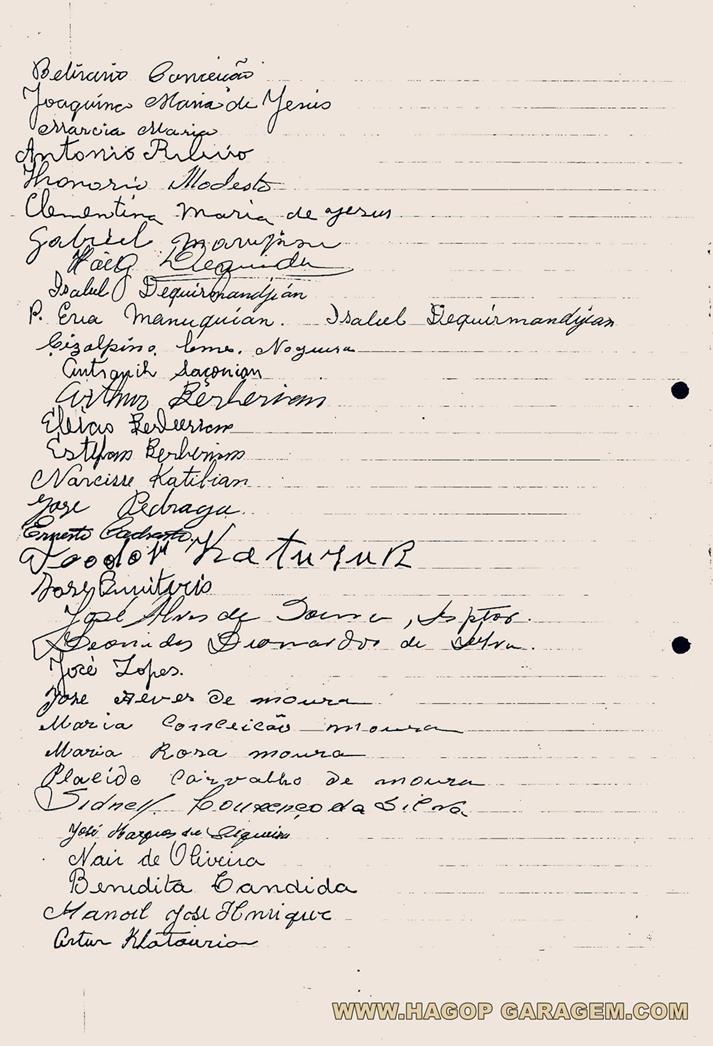 Conceição
Joaquina Maria de Jesus
Marcia Maria
Antonio Ribeiro
Honorio Modesto
Clementina Maria de yesus
Gabriel
Haig
Isabel Dequirmandjián
P. Eva Manuquian. Isabel Dequirmandjian
Cizalpino Nogueira
Antranik Saçonian
Arthur Berberian
Elias Berberian
Estefam Berberian
Narcisse Katibian
José Pedraga
Ernesto
José
José Alves de
Leonardos da Silva.
José Lopes.
Jose Alves de moura
Maria Conceicão moura
Maria Rosa moura
Placido Carvalho de moura
Sidney Lourenço da Silva
José Marques de Siqueira
Nair de Oliveira
Benedita Candida
Manoel José Henrique
Artur
WWW.HAGOP GARAGEM.COM